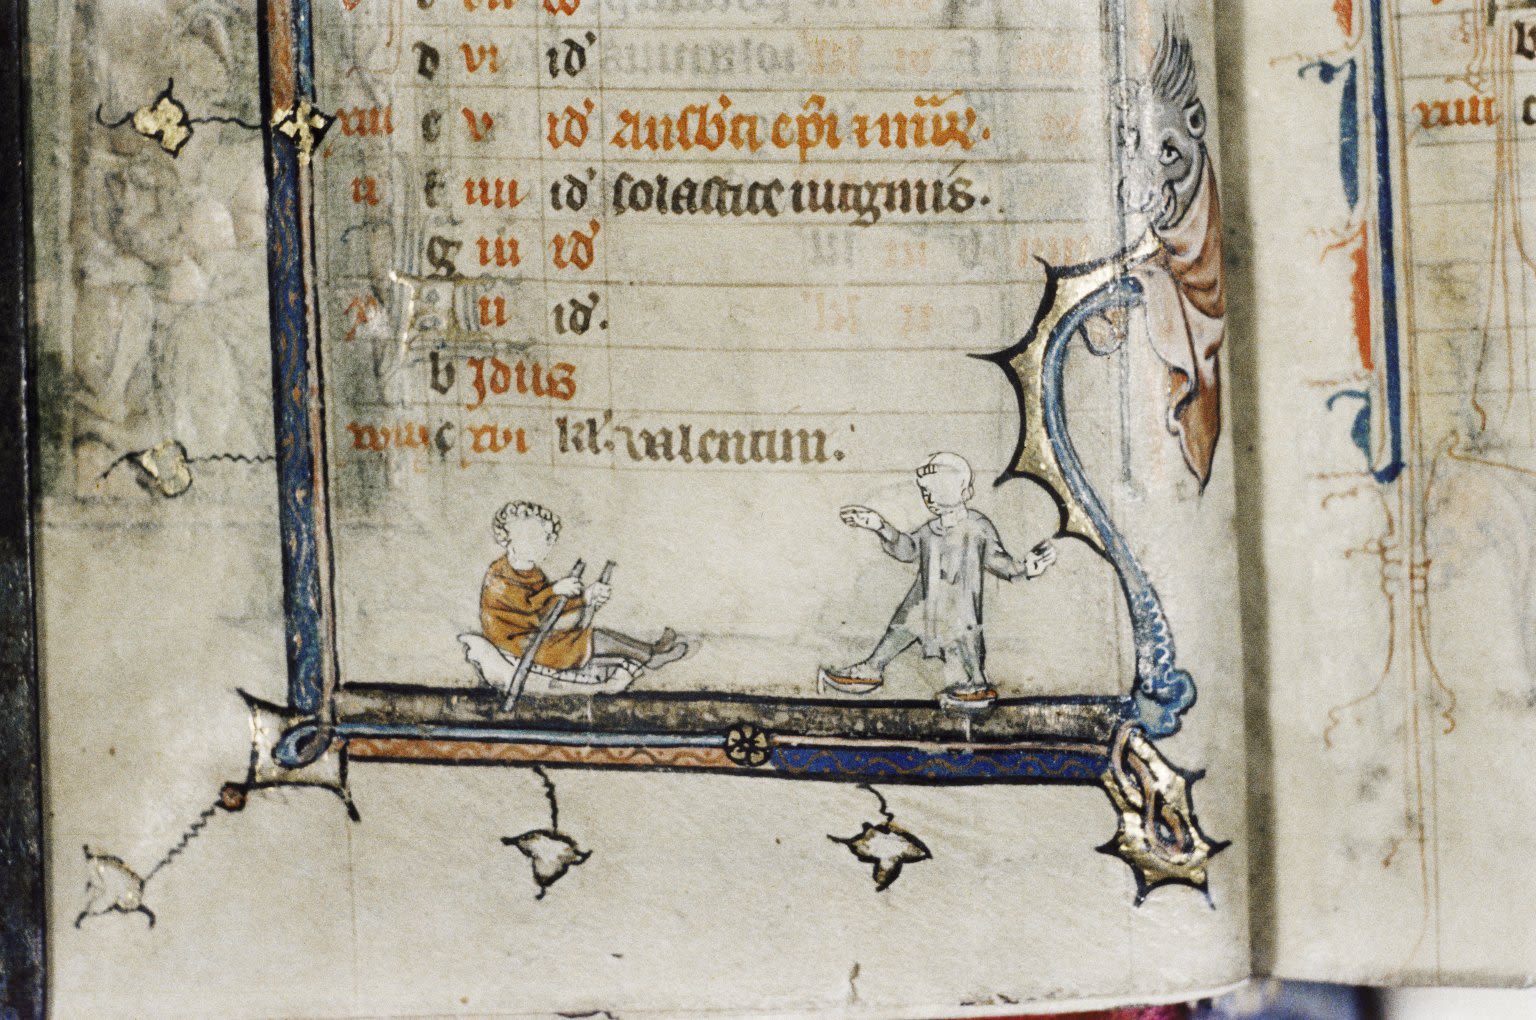 d vi id'
xiii e v id' Ausb'ti ep̄i ⁊ m̄r̄.
ii f iiii id' scolastice uirginis.
g iii id'
x ii id'.
b Idus
xviii c xvi kl'. valentini.
xiiii